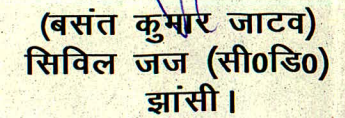 (बसंत कुमार जाटव)
सिविल जज (सी0डि0)
झांसी।